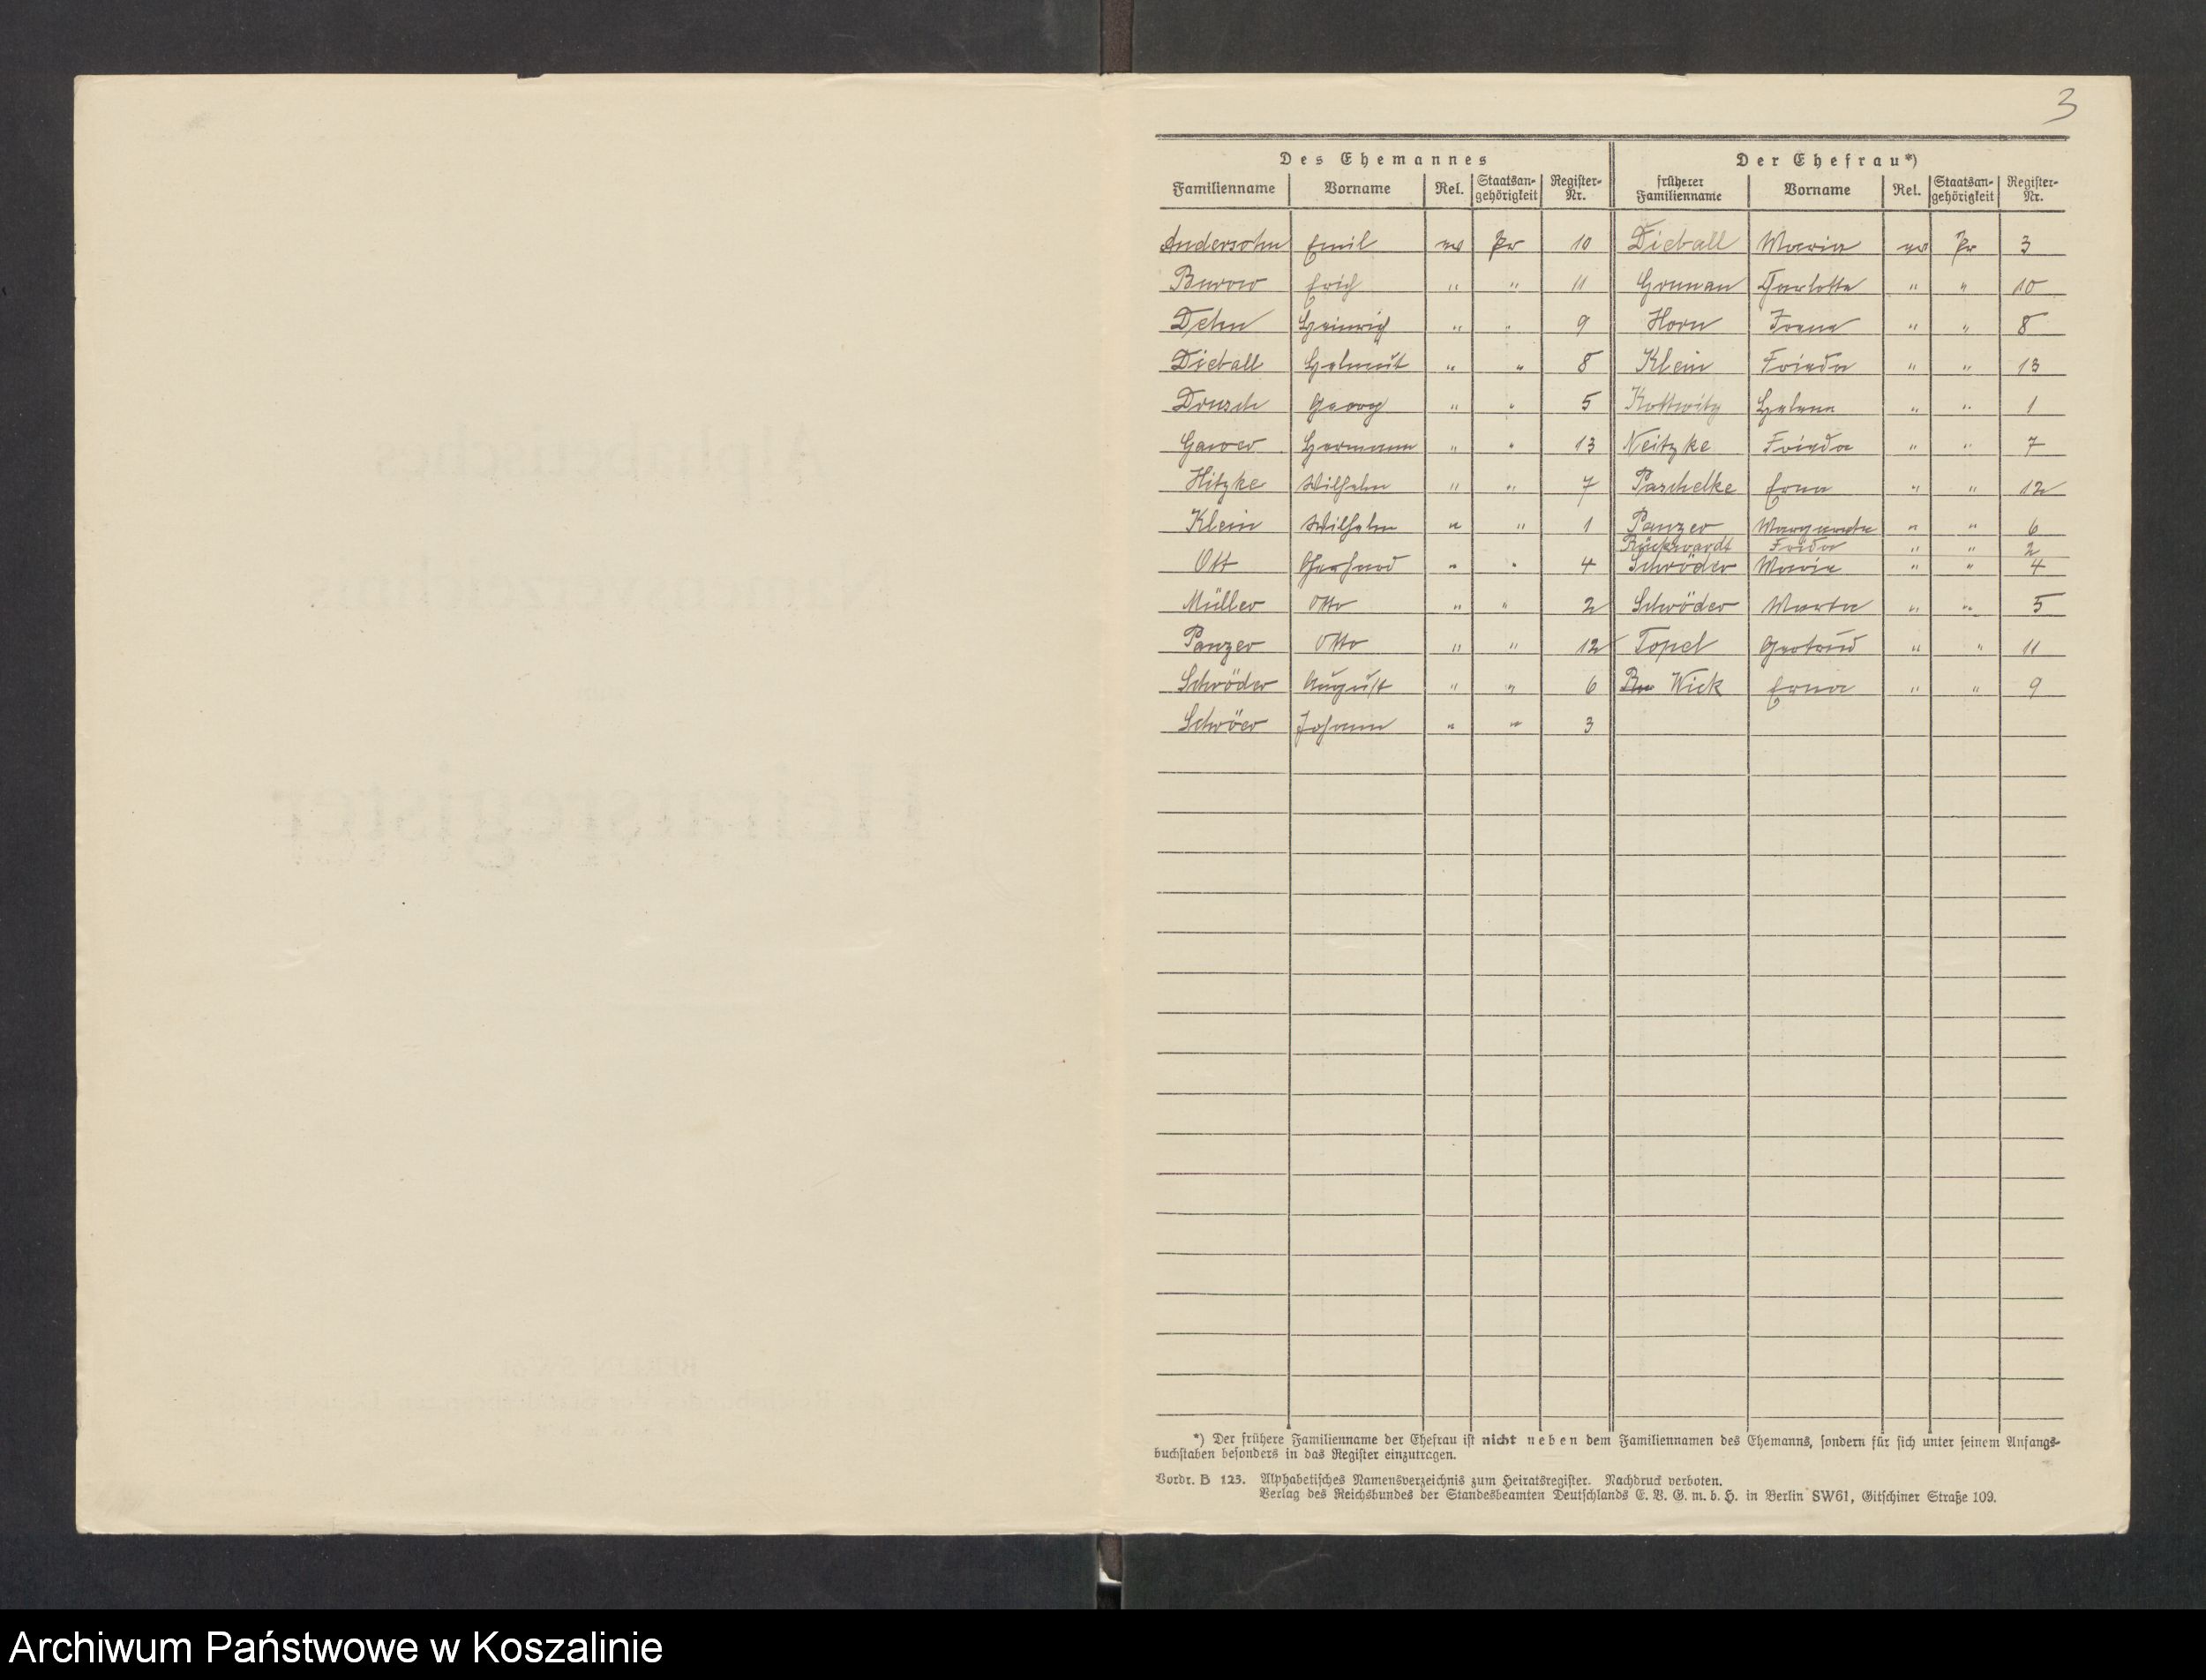 3
Des Ehemannes Der Ehefrau*)
Familienname Vorname Rel. Staatsan-gehörigkeit Register-Nr. früherer Familienname Vorname Rel. Staatsan-gehörigkeit Register-Nr.
Andersohn Emil ev Pr 10 Dieball Maria ev Pr 3
Burow Erich " " 11 Gruman Charlotte " " 10
Dehn Heinrich " " 9 Horn Irene " " 8
Dieball Helmut " " 8 Klein Frieda " " 13
Drusch Georg " " 5 Kottwitz Helene " " 1
Garow Hermann " " 13 Neitzke Frieda " " 7
Hitzke Wilhelm " " 7 Paschelke Erna " " 12
Klein Wilhelm " " 1 Panzer Margarete " " 6
Rückwardt Frida " " 2
Ott Gerhard " " 4 Schröder Maria " " 4
Müller Otto " " 2 Schröder Marta " " 5
Panzer Otto " " 12 Topel Gertrud " " 11
Schröder August " " 6 Wick Erna " " 9
Schröer Johann " " 3
*) Der frühere Familienname der Ehefrau ist nicht neben dem Familiennamen des Ehemanns, sondern für sich unter seinem Anfangs-
buchstaben besonders in das Register einzutragen.
Vordr. B 123. Alphabetisches Namensverzeichnis zum Heiratsregister. Nachdruck verboten.
Verlag des Reichsbundes der Standesbeamten Deutschlands E. V. G. m. b. H. in Berlin SW61, Gitschiner Straße 109.
Archiwum Państwowe w Koszalinie